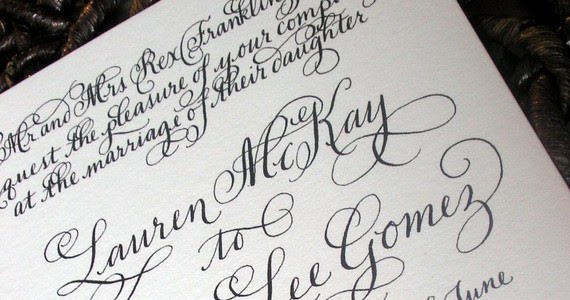 Mr and Mrs Rex Franklin
quest the pleasure of your comp
at the marriage of their daughter
Lauren McKay
to
Lee Gomez
June